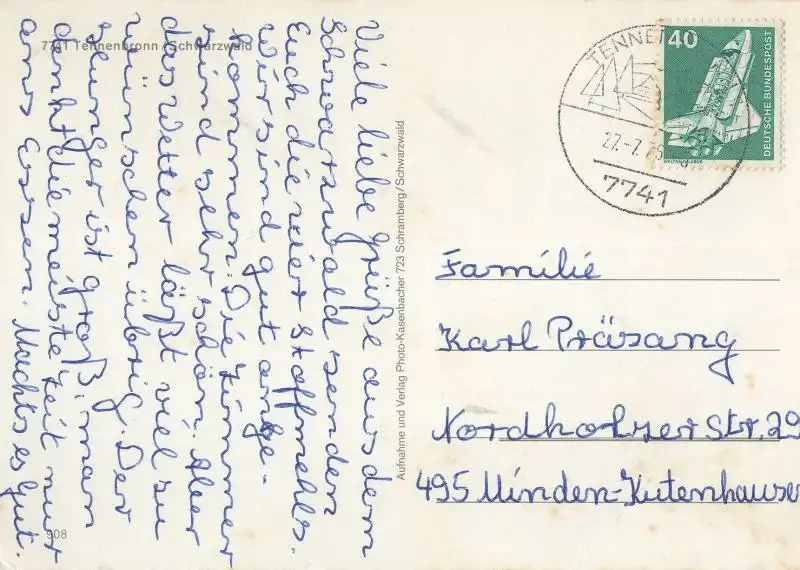 7741 Tennenbronn / Schwarzwald
Viele liebe Grüße aus dem
Schwarzwald senden
Euch die vier Stoffmehls.
Wir sind gut ange-
kommen. Die Zimmer
sind sehr schön. Aber
das Wetter läßt viel zu
wünschen übrig. Der
Hunger ist groß, man
denkt die meiste Zeit nur
ans Essen. Machts es gut.
908
Aufnahme und Verlag Photo-Kasenbacher 723 Schramberg/Schwarzwald
27.-7.76
7741
40
DEUTSCHE BUNDESPOST
WELTRAUMLABOR
Familie
Karl Präsang
Nordholzer Str. 29
495 Minden-Kutenhausen